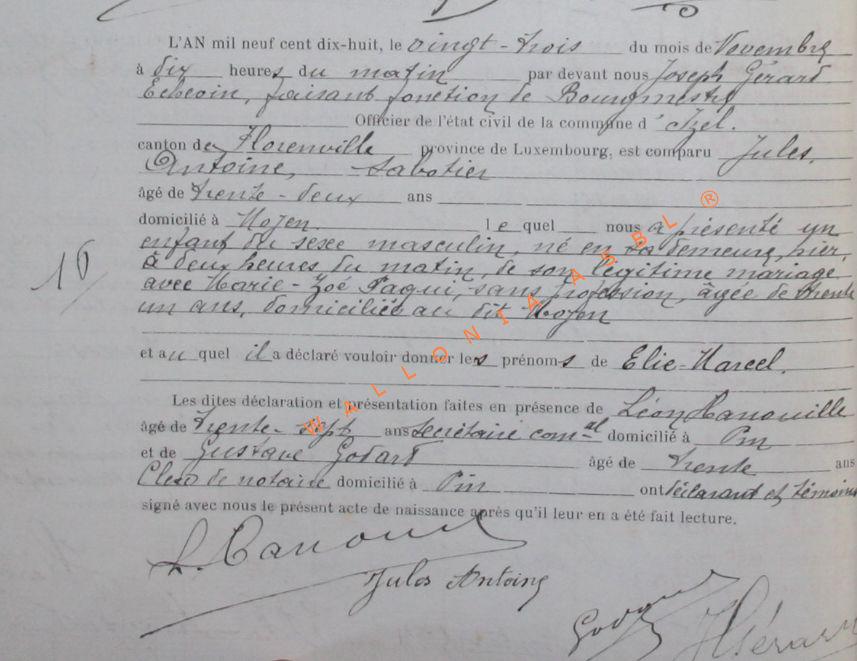 L'AN mil neuf cent dix-huit, le vingt-trois du mois de Novembre
à dix heures du matin par devant nous Joseph Gérard
Echevin, faisant fonction de Bourgmestre
Officier de l'état civil de la commune d'Izel.
canton de Florenville province de Luxembourg, est comparu Jules
Antoine, Sabotier
âgé de trente-deux ans
domicilié à Moyen lequel nous a présenté un
enfant du sexe masculin, né en sa demeure, hier,
à deux heures du matin, de son légitime mariage
16
avec Marie-Zoé Paqui, sans profession, âgée de trente
un ans, domiciliée au dit Moyen
et auquel il a déclaré vouloir donner les prénoms de Elie-Marcel.
Les dites déclaration et présentation faites en présence de Léon
âgé de trente-sept ans secrétaire com-al domicilié à Pin
et de Gustave Godart âgé de trente ans
Clerc de notaire domicilié à Pin ont déclarant et témoins
signé avec nous le présent acte de naissance après qu'il leur en a été fait lecture.
Jules Antoine
JGérard
WALLONIA ASBL ®